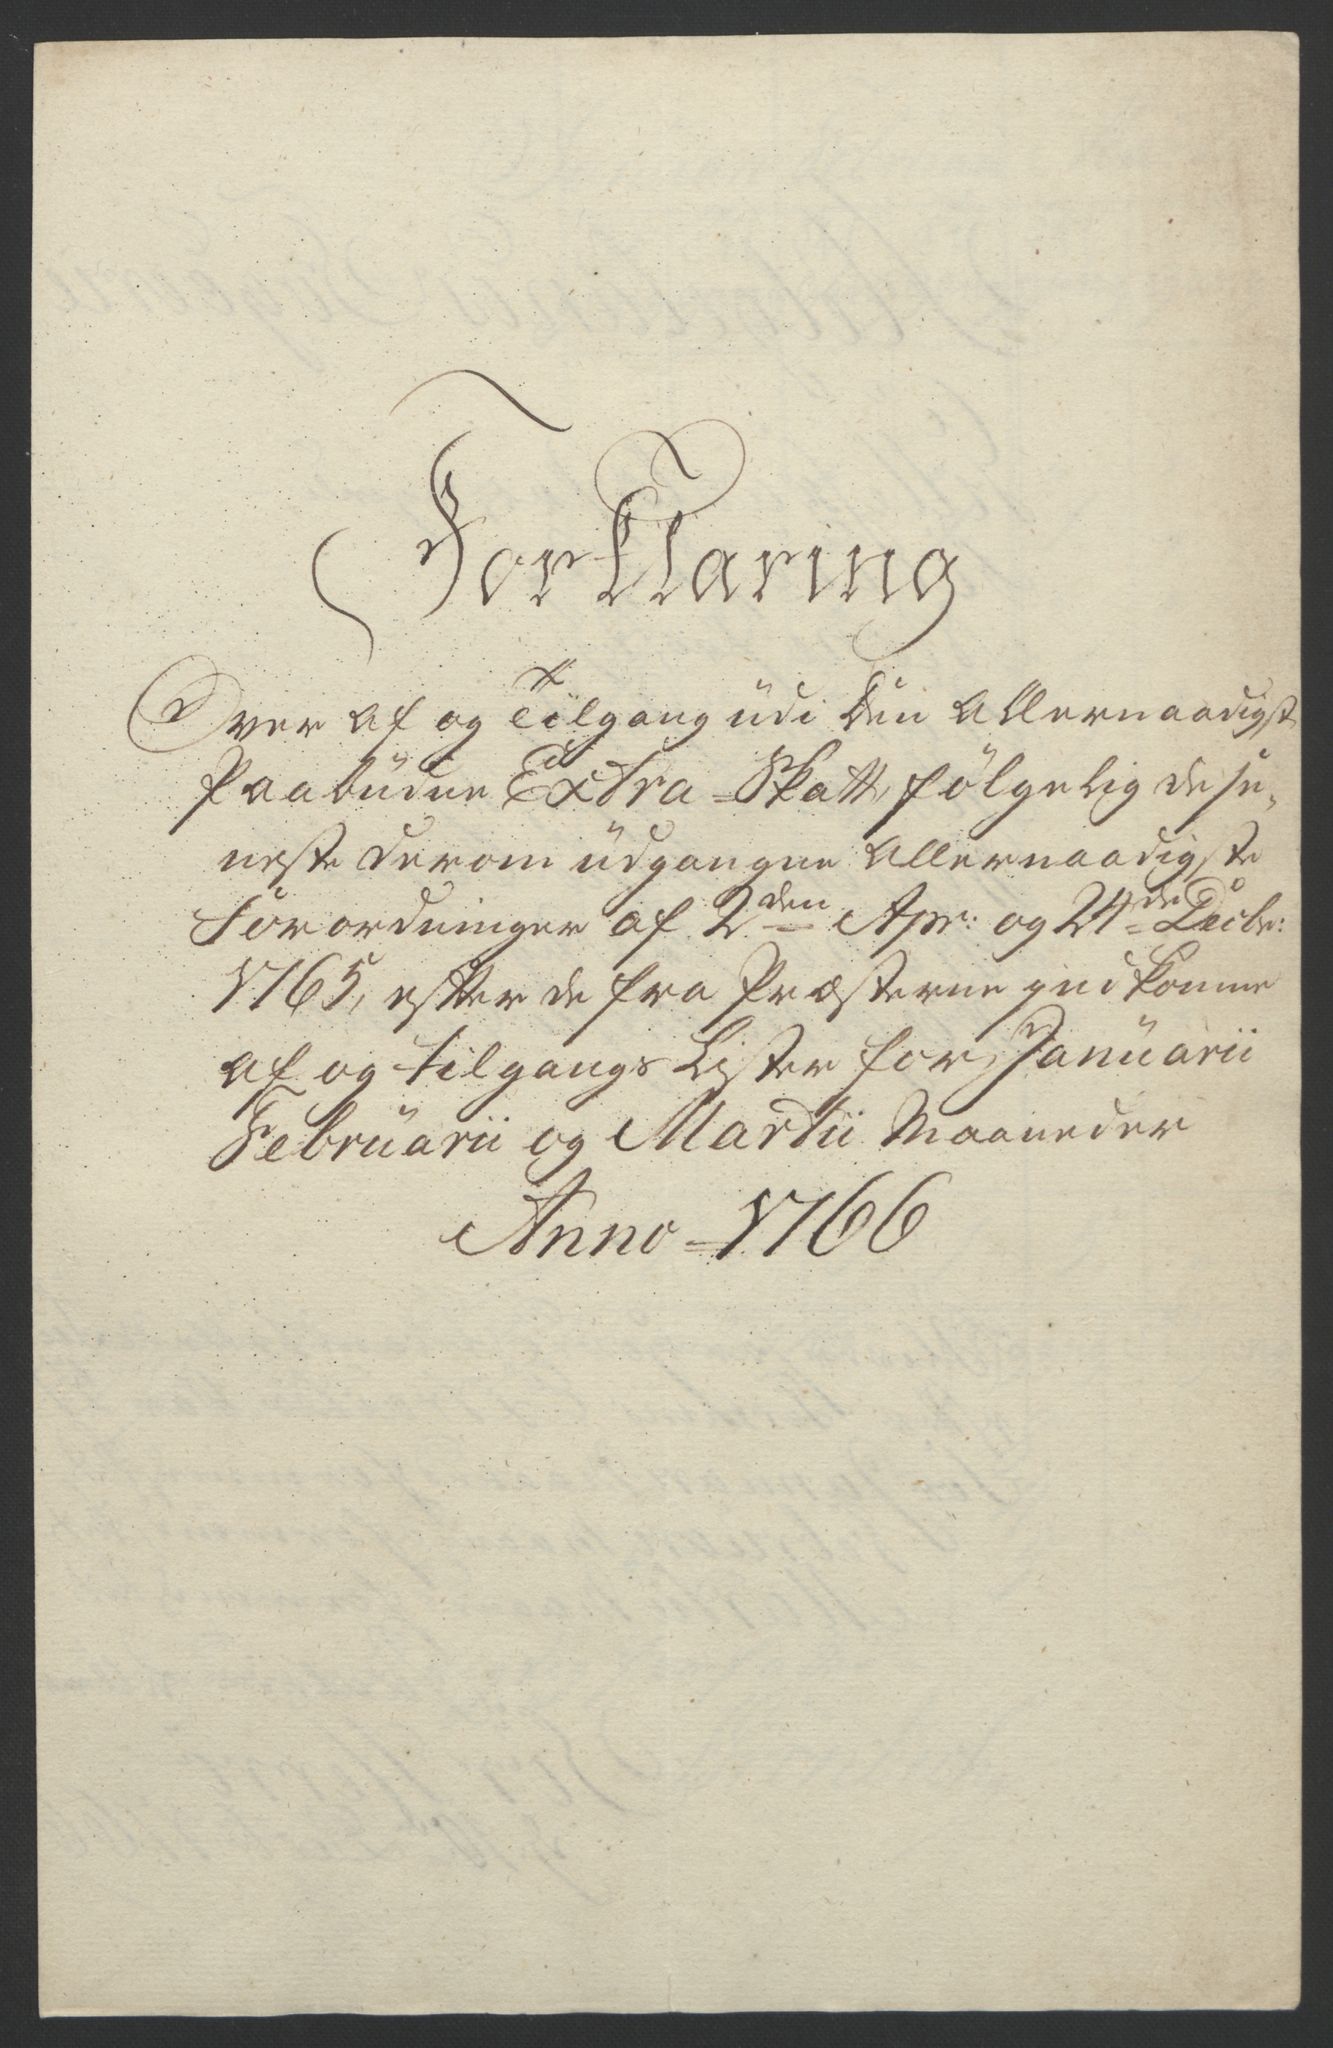 Forklaring
Over af og Tilgang üdi den Allernaadigst
Paabüdne Extra-Skatt, følgelig de se-
neste derom üdgangne Allernaadigste
Forordninger af 2den Apr: og 24de Decbr:
1765, efter de fra Præsterne indkomne
af og tilgangs Lister for Janüarii
Febrüarii og Martii Maaneder
Anno-1766